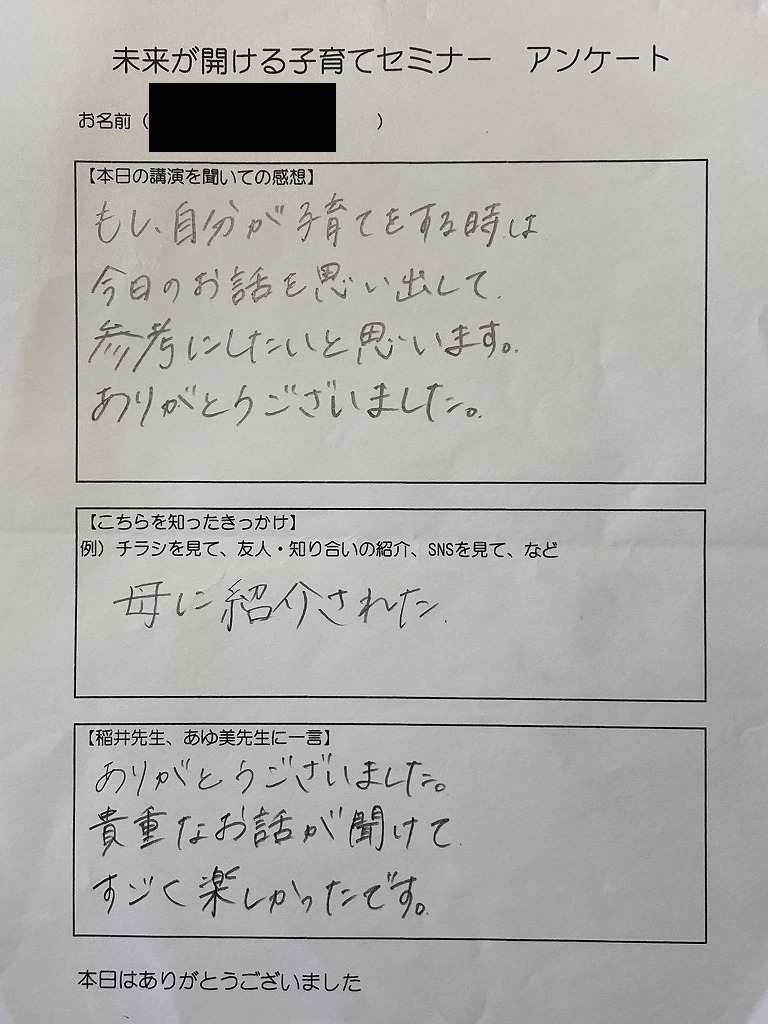 未来が開ける子育てセミナー　アンケート
お名前（　　　　　　　）
【本日の講演を聞いての感想】
もし、自分が子育てをする時は
今日のお話を思い出して
参考にしたいと思います。
ありがとうございました。
【こちらを知ったきっかけ】
例）チラシを見て、友人・知り合いの紹介、SNSを見て、など
母に紹介された
【稲井先生、あゆ美先生に一言】
ありがとうございました。
貴重なお話が聞けて
すごく楽しかったです。
本日はありがとうございました